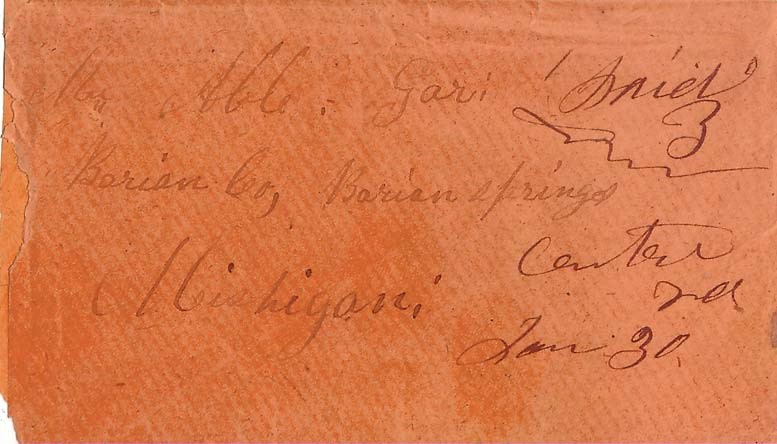 Mr Able. Gari
Barian Co, Barian springs
Michigan.
Paid
3
Center
Jan 30